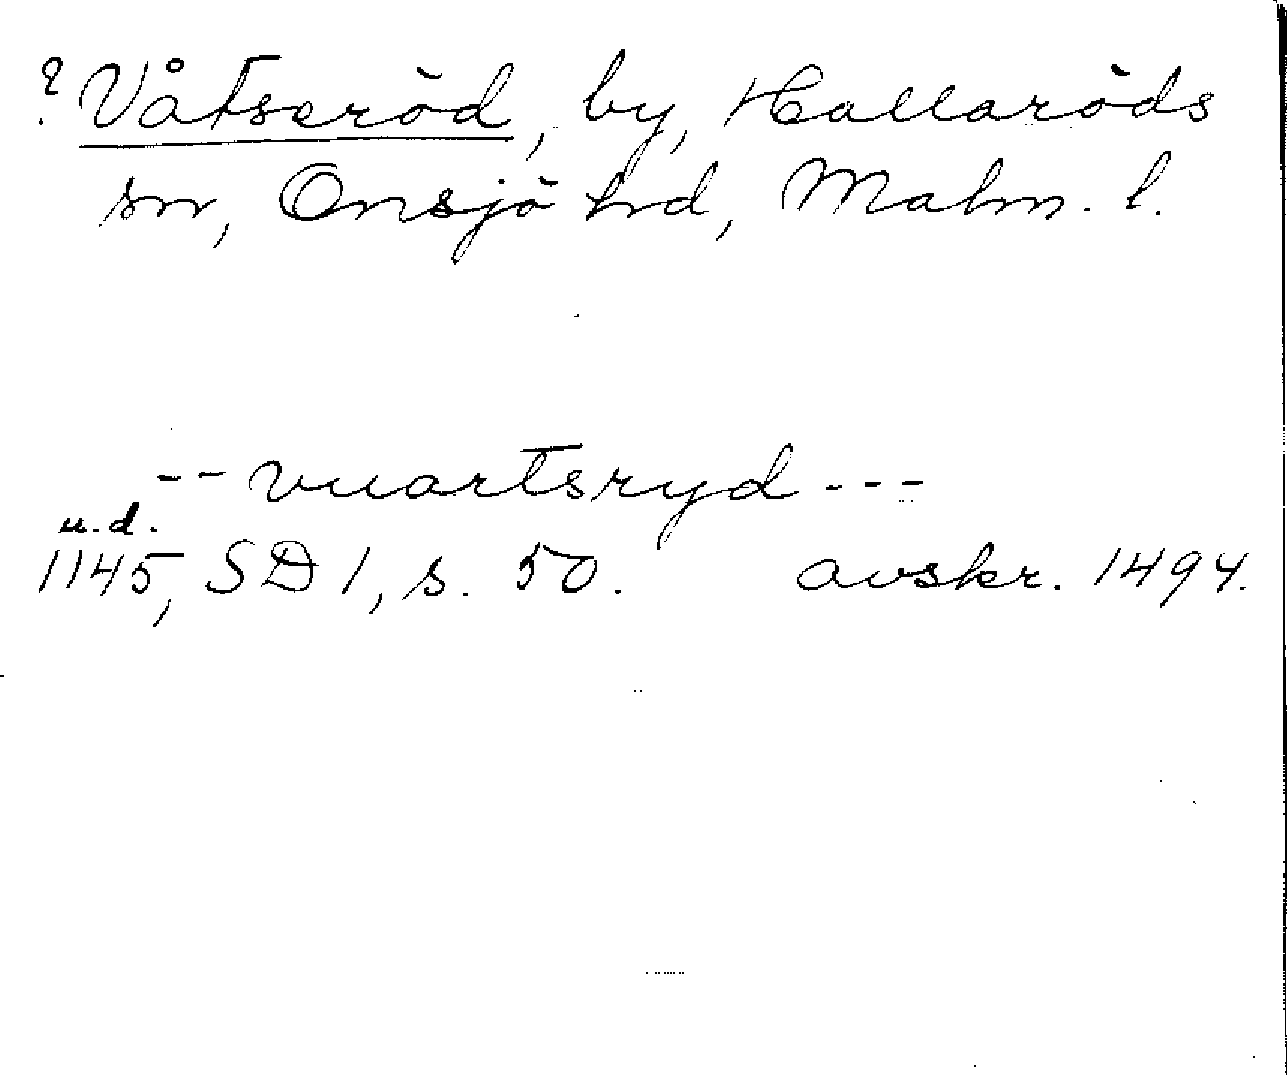 ? Våtseröd, by, Hallaröds
sn, Onsjö hd, Malm. l.
-- vuartsryd ---
u.d.
1145, SD 1, s. 50. avskr. 1494.